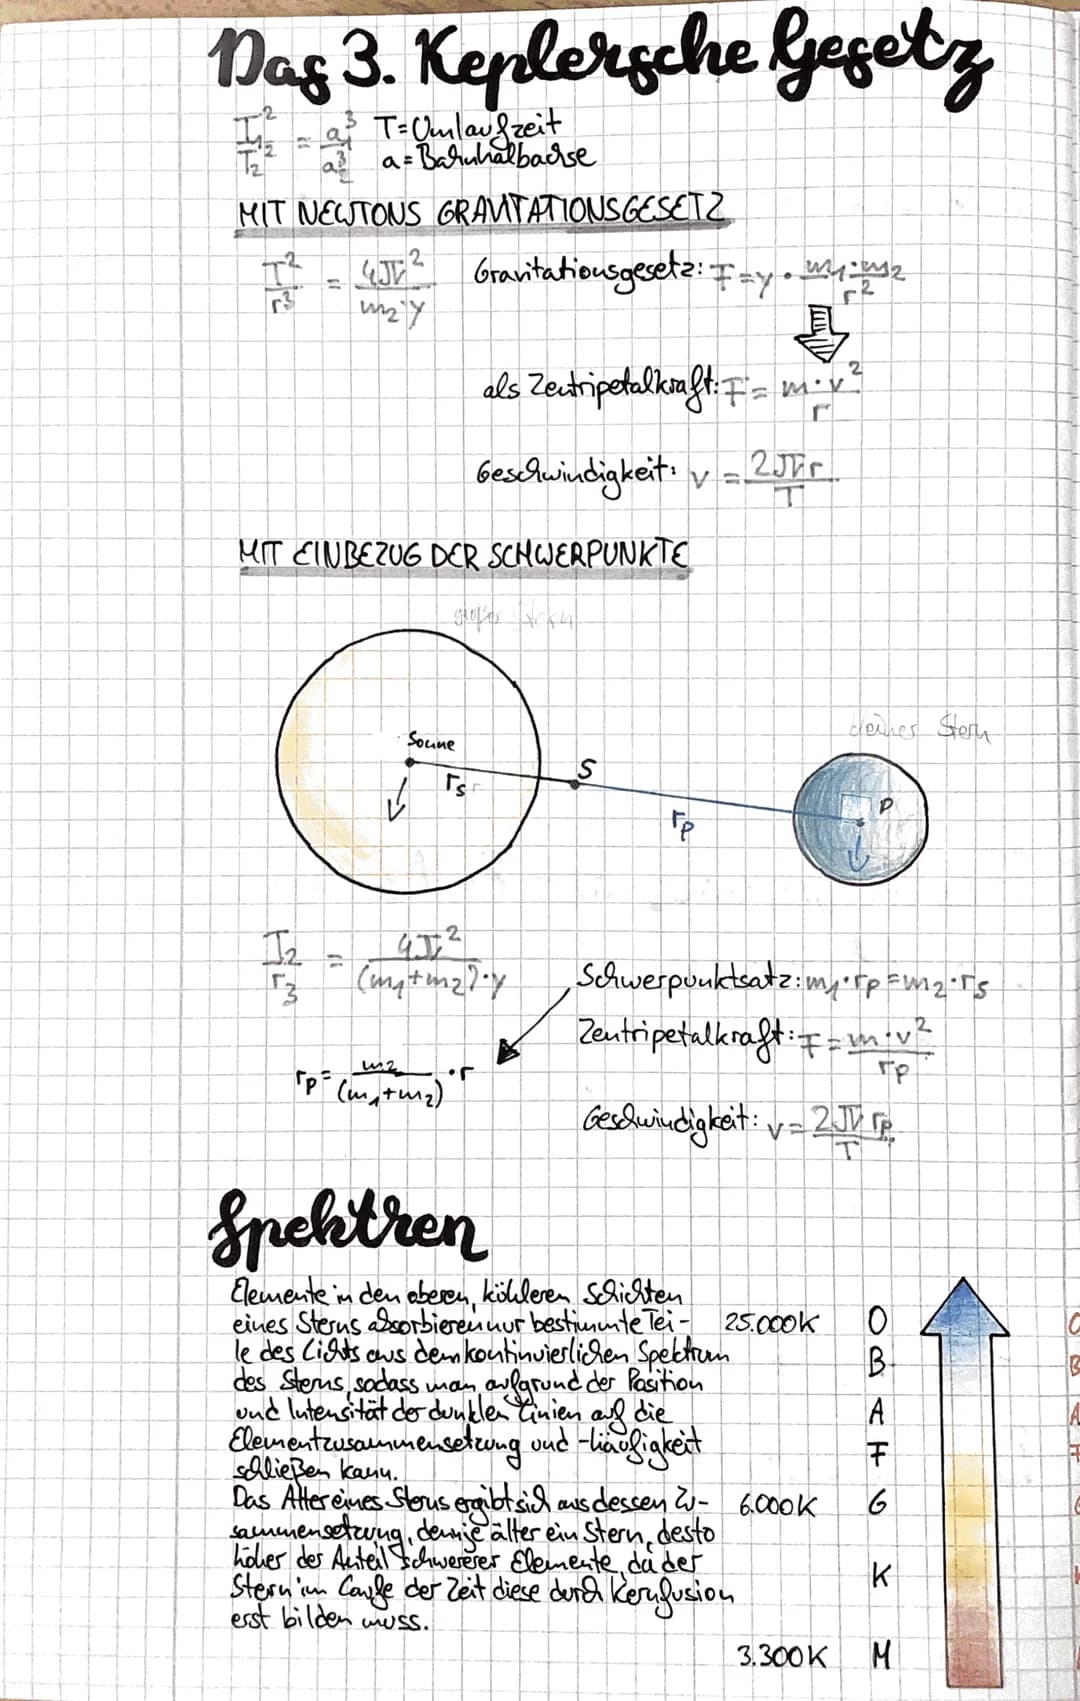 Das 3. Keplersche Gesetz
T₁²/T₂² = a₁³/a₂³ T=Umlaufzeit
a=Bahnhalbachse
MIT NEWTONS GRAVITATIONSGESETZ
T²/r³ = 4π²/m₂·γ Gravitationsgesetz: F=γ·m₁·m₂/r²
als Zentripetalkraft: F=m·v²/r
Geschwindigkeit: v=2πr/T
MIT EINBEZUG DER SCHWERPUNKTE
großer Stern
kleiner Stern
Sonne
rs
S
rp
P
T2/r3 = 4π²/(m₁+m₂)·γ
Schwerpunktsatz: m₁·rp=m₂·rs
Zentripetalkraft: F=m·v²/rp
rp=m₂/(m₁+m₂)·r
Geschwindigkeit: v=2πrp/T
Spektren
Elemente in den oberen, kühleren Schichten
eines Sterns absorbieren nur bestimmte Tei-
le des Lichts aus dem kontinuierlichen Spektrum
des Sterns, sodass man aufgrund der Position
und Intensität der dunklen Linien auf die
Elementzusammensetzung und -häufigkeit
schließen kann.
Das Alter eines Sterns ergibt sich aus dessen Zu-
sammensetzung, denn je älter ein Stern, desto
höher der Anteil schwererer Elemente, da der
Stern im Laufe der Zeit diese durch Kernfusion
erst bilden muss.
25.000K O
B
A
F
6.000K G
K
3.300K M